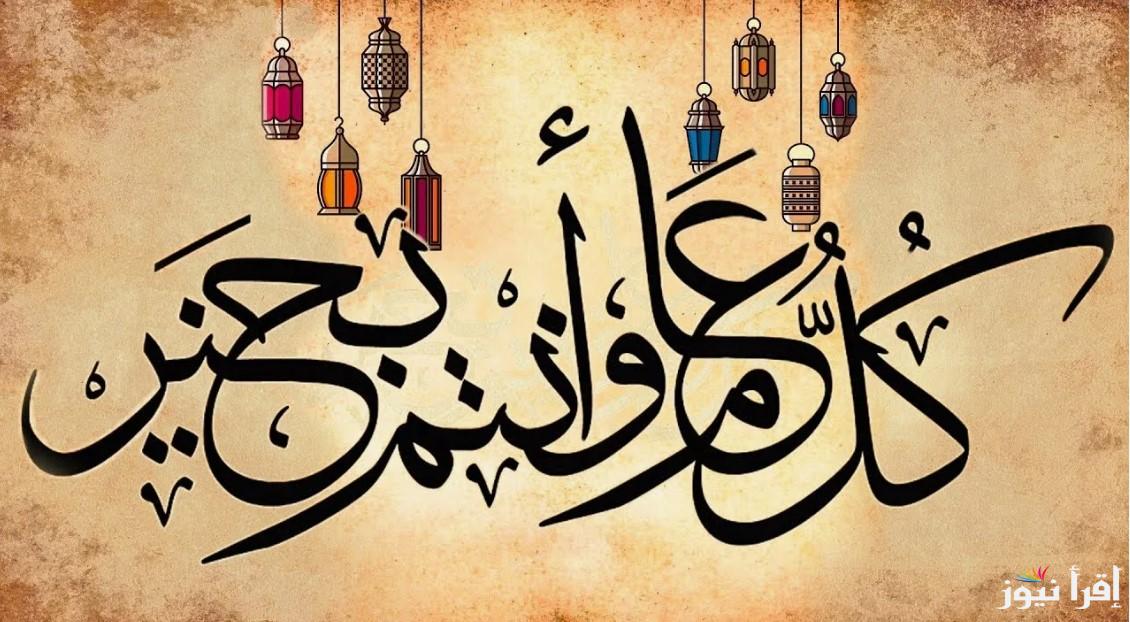 كُلُّ عَام وأنتم بخير
إقرأ نيوز